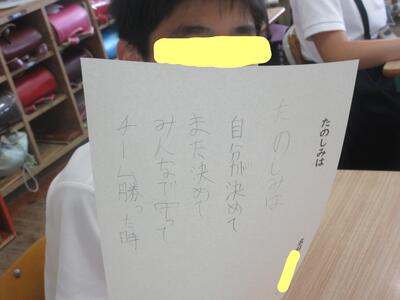 たのしみは
たのしみは
自分が決めて
また決めて
みんなで守って
チーム勝った時